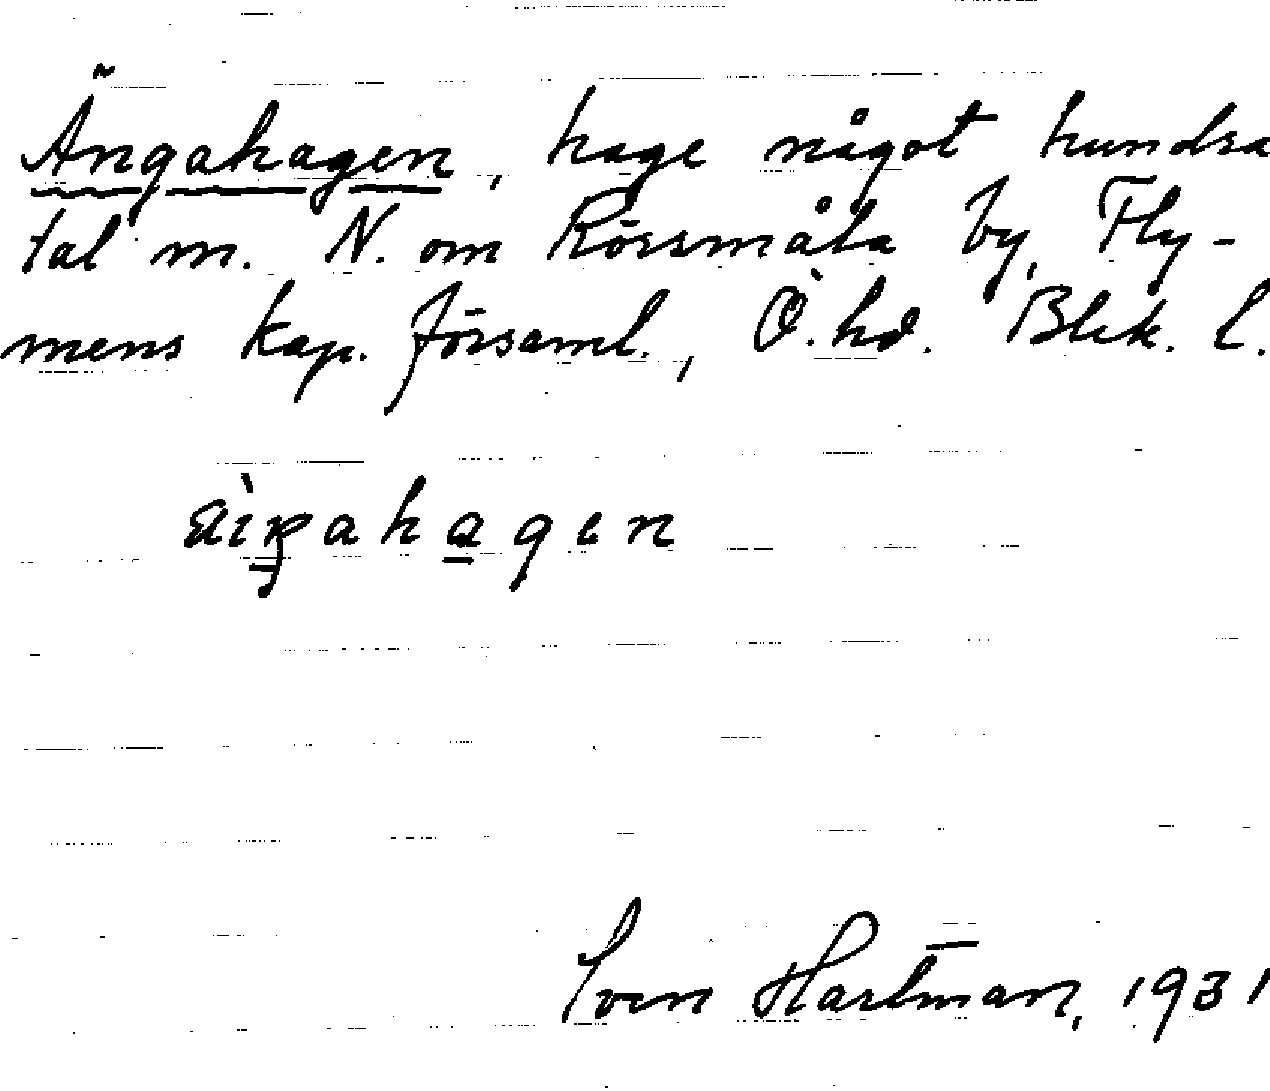 Ängahagen, hage något hundra
tal m. N. om Rörsmåla by, Fly-
mens kap. församl., Ö. hd. Blek. l.
hagen
Sven Hartman, 1931